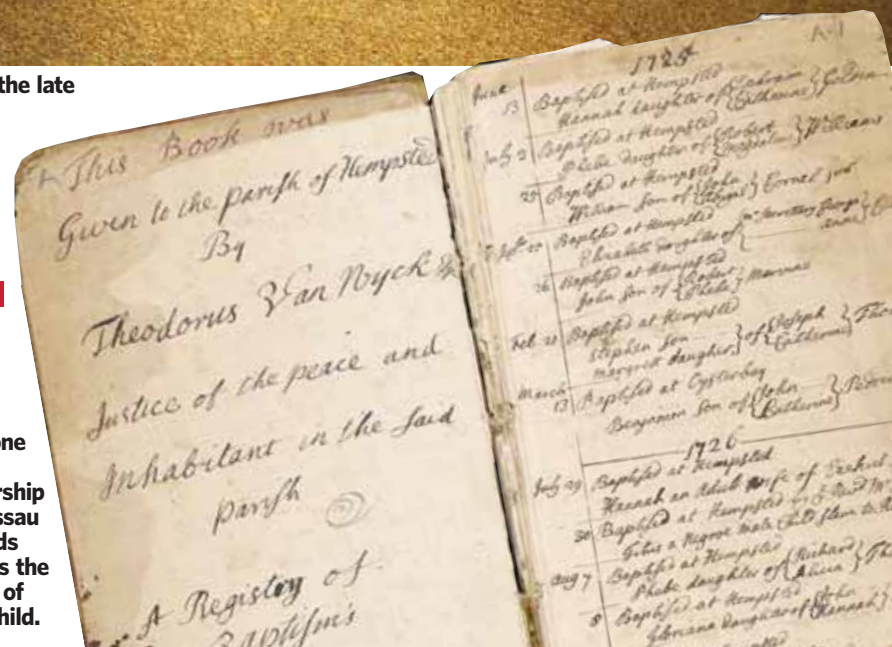 the late
one
ership
ssau
ds
s the
of
hild.
This Book was
Given to the parish of Hempsted
By
Theodorus Van Wyck
Justice of the peace and
Inhabitant in the said
parish
A Registry of
Baptism's
A-1
1725
June
13 Baptised at Hempsted
Hannah daughter of Catharine
July 2 Baptised at Hempsted
Phebe daughter of Robert Williams
25 Baptised at Hempsted
William Son of John Cornel
20 Baptised at Hempsted
Elizabeth daughter of George
26 Baptised at Hempsted
John Son of Robert Phebe
Feb. 21 Baptised at Hempsted
Stephen Son
Margret daughter of Joseph Catherine
March
13 Baptised at Oysterbay
Benjamin Son of John Catherine
1726
July 29 Baptised at Hempsted
Hannah an Adult wife of Ezekiel
30 Baptised at Hempsted
Titus a Negroe male Child slave to
Aug 7 Baptised at Hempsted
Phebe daughter of Richard Alicia
8 Baptised at Hempsted John
Gloriana daughter of Hannah